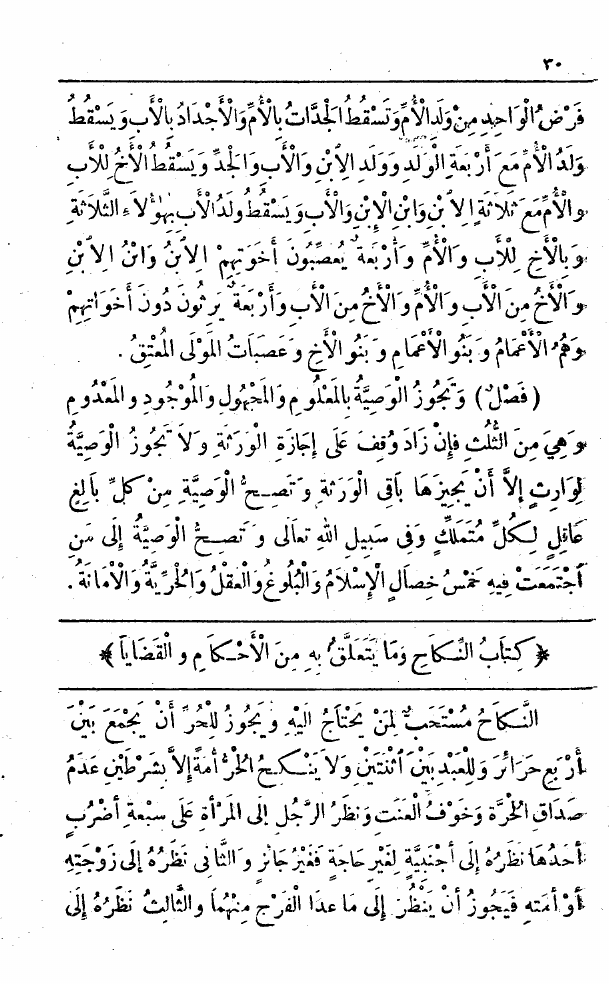 ٣٠
فَرْضُ الْوَاحِدِ مِنْ وَلَدِ الْأُمِّ وَتَسْقُطُ الْجَدَّاتُ بِالْأُمِّ وَالْأَجْدَادُ بِالْأَبِ وَيَسْقُطُ
وَلَدُ الْأُمِّ مَعَ أَرْبَعَةٍ الْوَلَدِ وَوَلَدِ الِابْنِ وَالْأَبِ وَالْجَدِّ وَيَسْقُطُ الْأَخُ لِلْأَبِ
وَالْأُمِّ مَعَ ثَلَاثَةٍ الِابْنِ وَابْنِ الِابْنِ وَالْأَبِ وَيَسْقُطُ وَلَدُ الْأَبِ بِهٰؤُلَاءِ الثَّلَاثَةِ
وَبِالْأَخِ لِلْأَبِ وَالْأُمِّ وَأَرْبَعَةٌ يُعَصِّبُونَ أَخَوَتِهِمْ الِابْنُ وَابْنُ الِابْنِ
وَالْأَخُ مِنَ الْأَبِ وَالْأُمِّ وَالْأَخُ مِنَ الْأَبِ وَأَرْبَعَةٌ يَرِثُونَ دُونَ أَخَوَاتِهِمْ
وَهُمُ الْأَعْمَامُ وَبَنُو الْأَعْمَامِ وَبَنُو الْأَخِ وَعَصَبَاتُ الْمَوْلَى الْمُعْتِقُ .
(فَصْلٌ) وَتَجُوزُ الْوَصِيَّةُ بِالْمَعْلُومِ وَالْمَجْهُولِ وَالْمَوْجُودِ وَالْمَعْدُومِ
وَهِيَ مِنَ الثُّلُثِ فَإِنْ زَادَ وُقِفَ عَلَى إِجَازَةِ الْوَرَثَةِ وَلَا تَجُوزُ الْوَصِيَّةُ
لِوَارِثٍ إِلَّا أَنْ يُجِيزَهَا بَاقِى الْوَرَثَةِ وَتَصِحُّ الْوَصِيَّةِ مِنْ كُلِّ بَالِغٍ
عَاقِلٍ لِكُلِّ مُتَمَلِّكٍ وَفِى سَبِيلِ اللهِ تَعَالَى وَتَصِحُّ الْوَصِيَّةُ إِلَى مَنِ
اجْتَمَعَتْ فِيهِ خَمْسُ خِصَالٍ الْإِسْلَامُ وَالْبُلُوغُ وَالْعَقْلُ وَالْحُرِّيَّةُ وَالْأَمَانَةُ .
﴿ كِتَابُ النِّكَاحِ وَمَا يَتَعَلَّقُ بِهِ مِنَ الْأَحْكَامِ وَالْقَضَايَا ﴾
النِّكَاحُ مُسْتَحَبٌّ لِمَنْ يَحْتَاجُ الَيْهِ وَيَجُوزُ لِلْحُرِّ أَنْ يَجْمَعَ بَيْنَ
أَرْبَعِ حَرَائِرَ وَلِلْعَبْدِ بَيْنَ اثْنَتَيْنِ وَلَا يَنْكِحُ الْحُرُّ أَمَةً إِلَّا بِشَرْطَيْنِ عَدَمُ
صَدَاقِ الْحُرَّةِ وَخَوْفُ الْعَنَتِ وَنَظَرُ الرَّجُلِ إِلَى الْمَرْأَةِ عَلَى سَبْعَةِ أَضْرُبٍ
أَحَدُهَا نَظَرُهُ إِلَى أَجْنَبِيَّةٍ لِغَيْرِ حَاجَةٍ فَغَيْرُ جَائِزٍ وَالثَّانِى نَظَرُهُ إِلَى زَوْجَتِهِ
أَوْ أَمَتِهِ فَيَجُوزُ أَنْ يَنْظُرَ إِلَى مَا عَدَا الْفَرْجِ مِنْهُمَا وَالثَّالِثُ نَظَرُهُ إِلَى